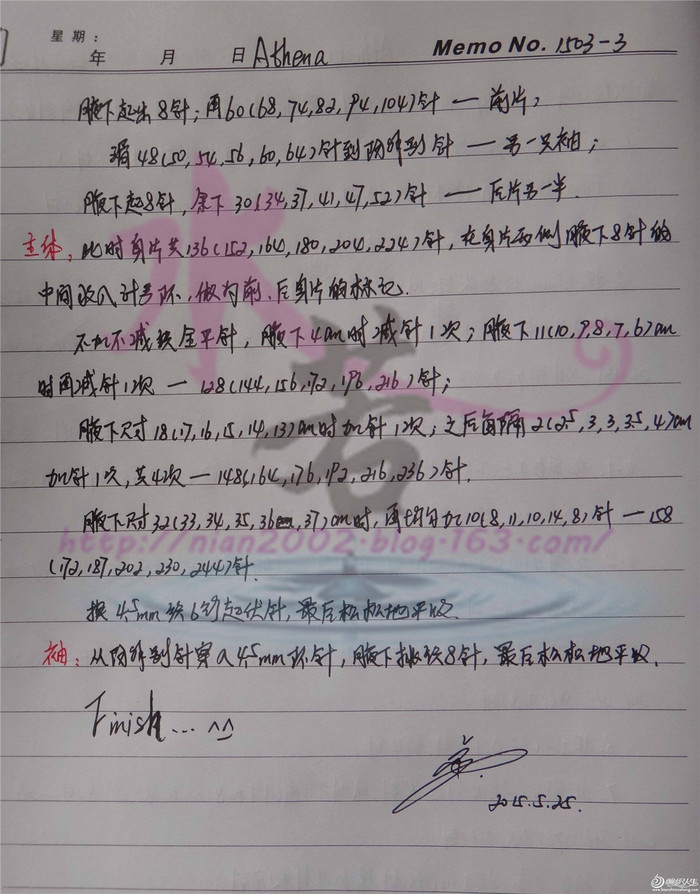 星期：
年 月 日 Athena Memo No. 1503-3
腋下起出8针；再60(68,74,82,94,104)针 — 前片；
48(50,54,56,60,64)针到防解别针 — 另一只袖；
腋下起8针，余下30(34,37,41,47,52)针 — 后片另一半.
主体：此时身片共136(152,164,180,204,224)针，在身片两侧腋下8针的
中间放入计号环，做为前、后身片的标记.
不加不减织全平针，腋下4cm时减针1次；腋下11(10,9,8,7,6)cm
时再减针1次 — 128(144,156,172,196,216)针；
腋下尺寸18(17,16,15,14,13)cm时加针1次；之后每隔2(2.5,3,3,3.5,4)cm
加针1次，共4次 — 148(164,176,192,216,236)针.
腋下尺寸32(33,34,35,36,37)cm时，再均匀加10(8,11,10,14,8)针 — 158
(172,187,202,230,244)针.
换4.5mm织6行起伏针，最后松松地平收.
袖：从防解别针穿入4.5mm环针，腋下挑织8针，最后松松地平收.
Finish... ^^
2015.5.25.
水若
http://nian2002.blog.163.com/